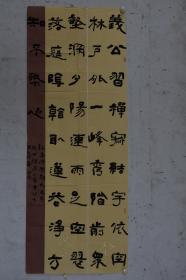 義公習禪寂結宇依空
林戶外一峰秀階前衆
壑深夕陽連雨足空翠
落庭陰看取蓮花淨方
知不染心